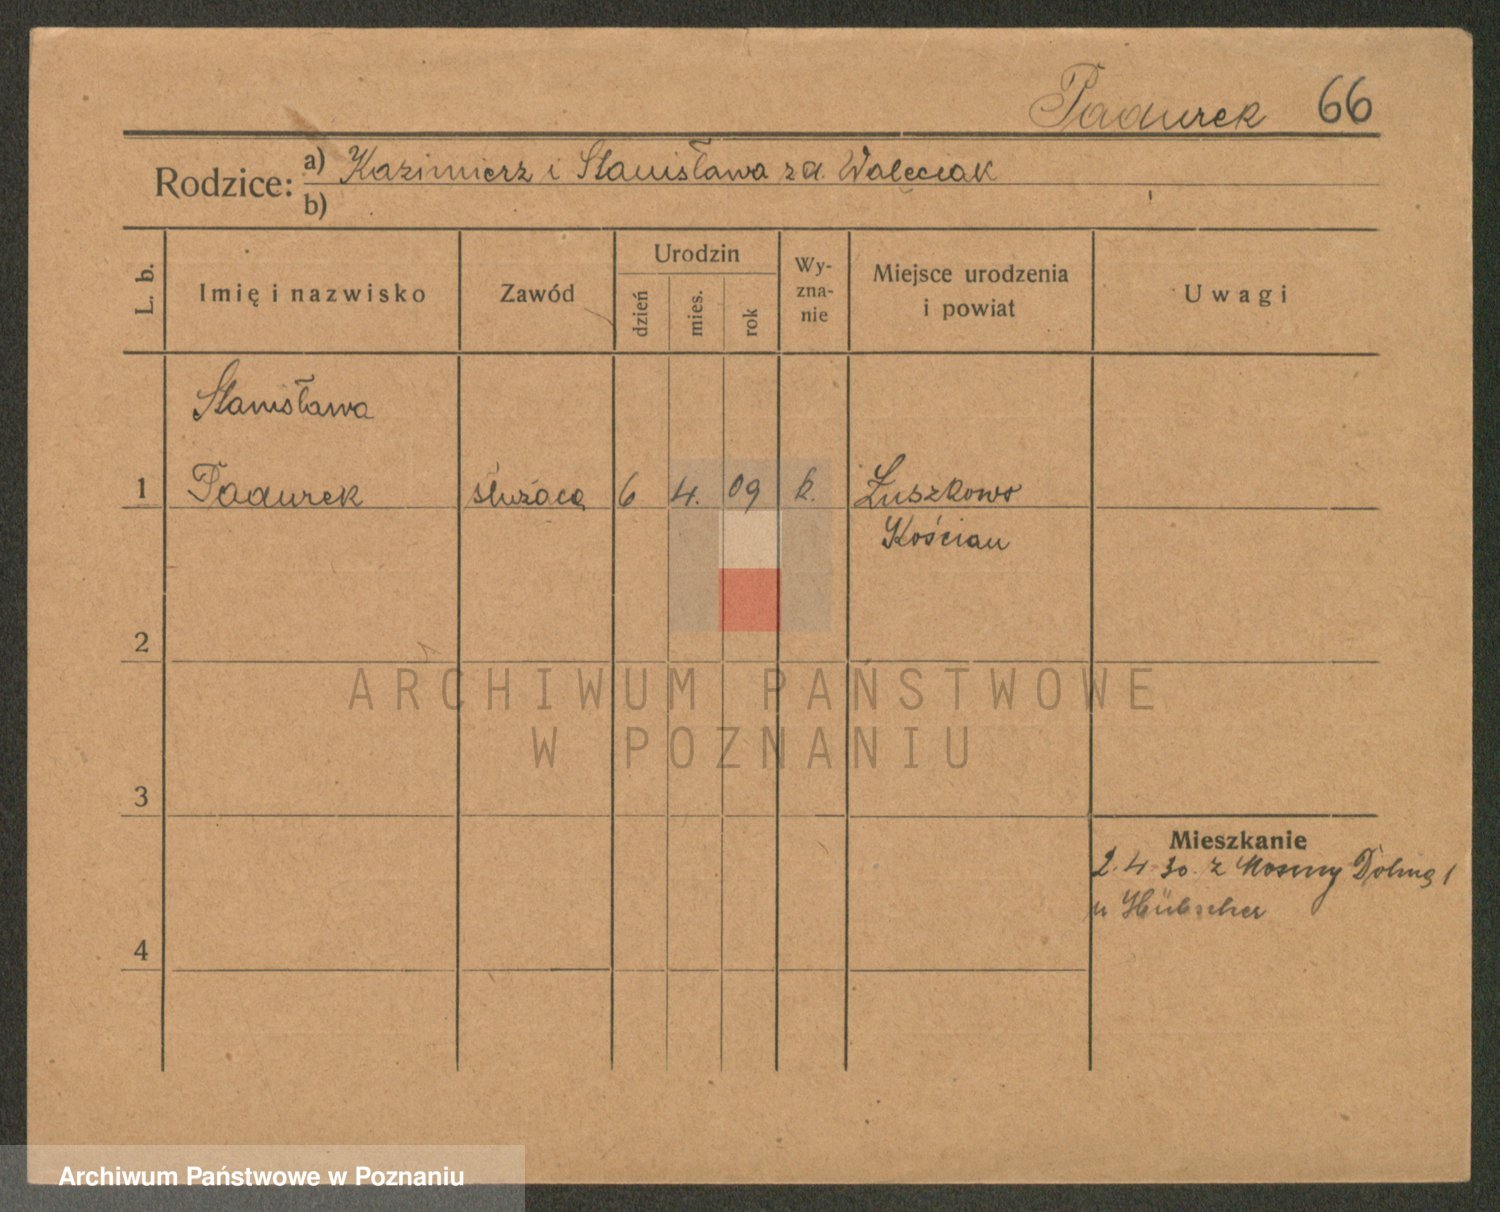 Padurek 66
Rodzice: a) Kazimierz i Stanisława zd. Walęciak
b)
L. b. Imię i nazwisko Zawód Urodzin dzień mies. rok Wy-
zna-
nie Miejsce urodzenia
i powiat Uwagi
Stanisława
1 Padurek służąca 6 4. 09 k. Łuszkowo
Kościan
2
ARCHIWUM PAŃSTWOWE
W POZNANIU
3
Mieszkanie
2.4.30. z Mosiny Dolina 1
u Hübscher
4
Archiwum Państwowe w Poznaniu